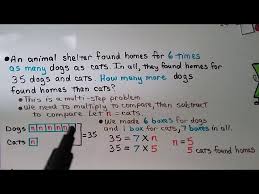 • An animal shelter found homes for 6 times
as many dogs as cats. In all, they found homes for
35 dogs and cats. How many more dogs
found homes than cats?
• This is a multi-step problem
• We need to multiply to compare, then subtract
to compare. Let n = cats.
Dogs n n n n n n = 35
Cats n
• We made 6 boxes for dogs
and 1 box for cats, 7 boxes in all.
35 = 7 X n n = 5
35 = 7 X 5 5 cats found homes